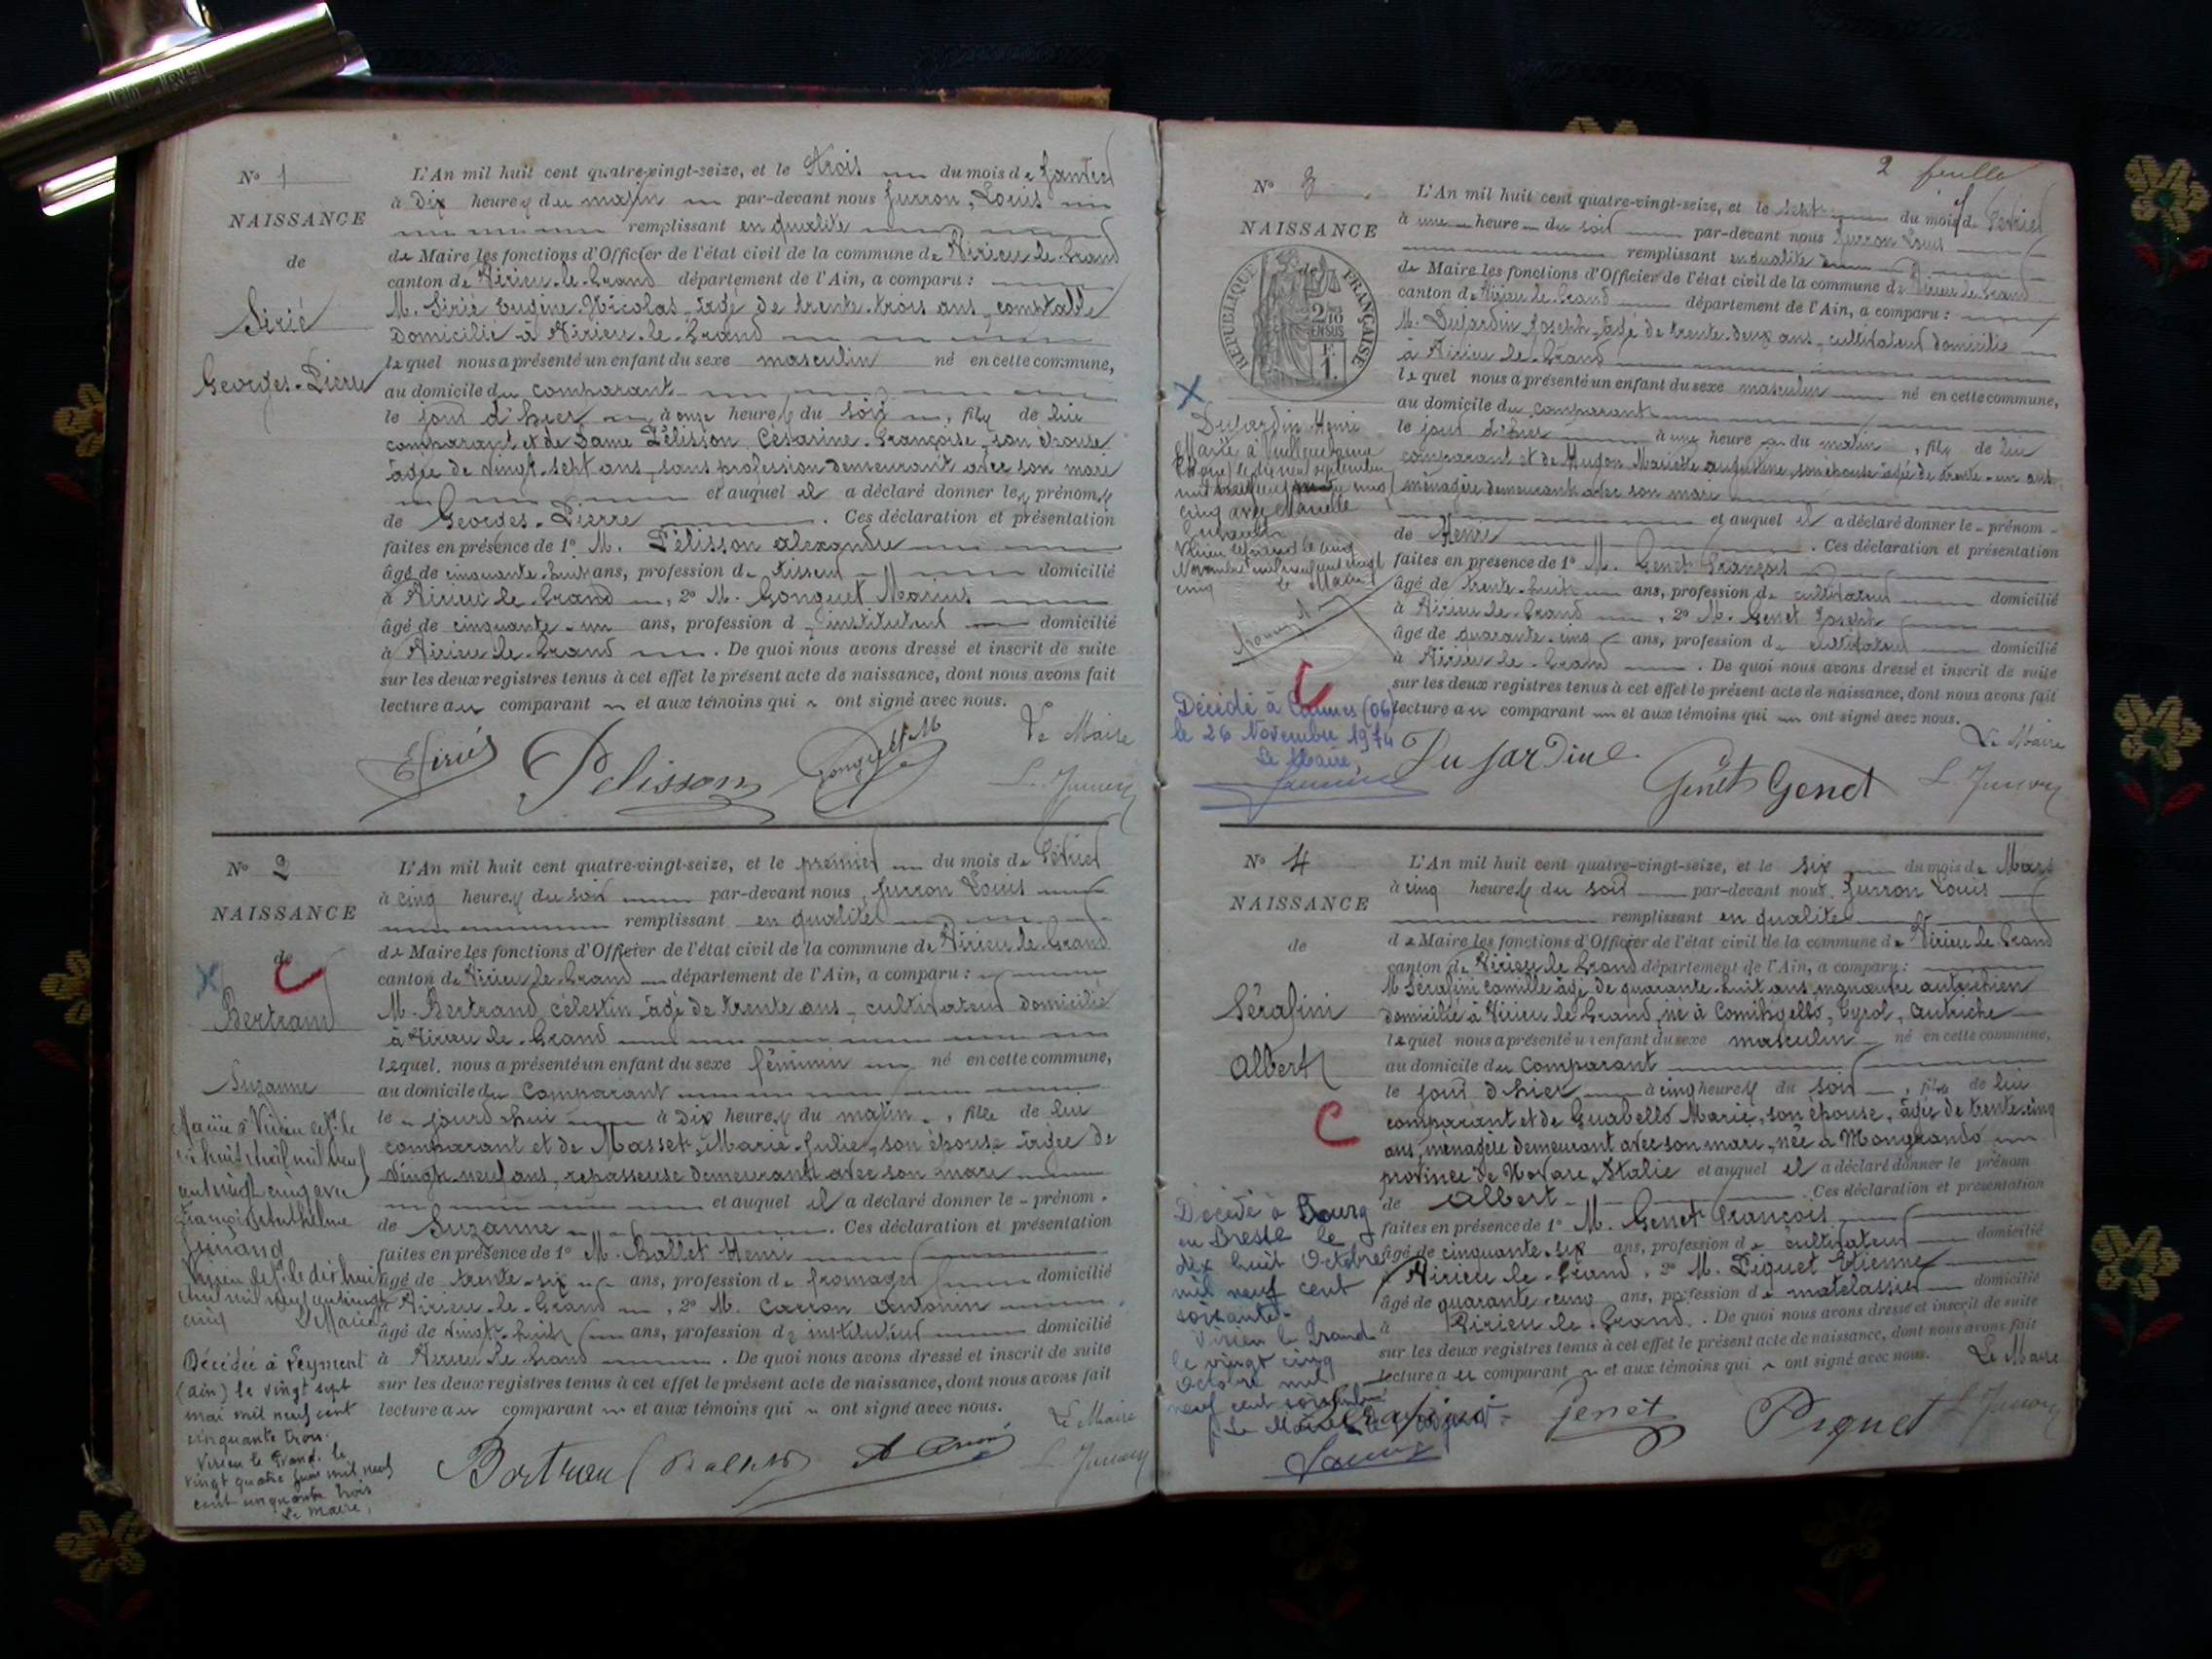 N° 1
NAISSANCE
de
Sirié
Georges-Pierre
L'An mil huit cent quatre-vingt-seize, et le trois du mois de Janvier
à dix heures du matin par-devant nous Jurron, Louis
remplissant en qualité
de Maire les fonctions d'Officier de l'état civil de la commune de Virieu-le-Grand
canton de Virieu-le-Grand département de l'Ain, a comparu :
M. Sirié Eugène Nicolas âgé de trente-trois ans, comptable
domicilié à Virieu-le-Grand
lequel nous a présenté un enfant du sexe masculin né en cette commune,
au domicile du comparant
le jour d'hier à onze heures du soir, fils de lui
comparant et de Dame Pélisson Césarine-Françoise, son épouse
âgée de vingt-sept ans, sans profession demeurant avec son mari
et auquel il a déclaré donner les prénoms
de Georges-Pierre. Ces déclaration et présentation
faites en présence de 1° M. Pélisson alexandre
âgé de cinquante-huit ans, profession de tisseur domicilié
à Virieu-le-Grand, 2° M. Gonguet Marius
âgé de cinquante-un ans, profession d'instituteur domicilié
à Virieu-le-Grand. De quoi nous avons dressé et inscrit de suite
sur les deux registres tenus à cet effet le présent acte de naissance, dont nous avons fait
lecture au comparant et aux témoins qui ont signé avec nous.
Le Maire
E Sirié Pelisson Gonguet M L. Jurron
N° 2
NAISSANCE
de
Bertrand
Suzanne
Mariée à Virieu le Gd le
huit mil neuf
cent vingt cinq avec
François Anthelme
Virieu le Gd le dix huit
mil neuf cent vingt
cinq Le Maire
Décédée à Leyment
(Ain) le vingt sept
mai mil neuf cent
cinquante trois.
Virieu le Grand. le
vingt quatre juin mil neuf
cent cinquante trois
Le Maire,
L'An mil huit cent quatre-vingt-seize, et le premier du mois de Février
à cinq heures du soir par-devant nous, Jurron Louis
remplissant en qualité
de Maire les fonctions d'Officier de l'état civil de la commune de Virieu-le-Grand
canton de Virieu-le-Grand département de l'Ain, a comparu :
M. Bertrand, célestin âgé de trente ans, cultivateur domicilié
à Virieu-le-Grand
lequel nous a présenté un enfant du sexe féminin né en cette commune,
au domicile du Comparant
le jourd'hui à dix heures du matin, fille de lui
comparant et de Masset, Marie-Julie, son épouse âgée de
vingt-neuf ans, repasseuse demeurant avec son mari
et auquel il a déclaré donner le prénom
de Suzanne. Ces déclaration et présentation
faites en présence de 1° M. Ballet Henri
âgé de trente-six ans, profession de fromager domicilié
à Virieu-le-Grand, 2° M. Carron Antonin
âgé de vingt-huit ans, profession d'instituteur domicilié
à Virieu-le-Grand. De quoi nous avons dressé et inscrit de suite
sur les deux registres tenus à cet effet le présent acte de naissance, dont nous avons fait
lecture au comparant et aux témoins qui ont signé avec nous.
Le Maire
Bertrand Ballet L. Jurron
2 feuille
N° 3
NAISSANCE
de
REPUBLIQUE FRANÇAISE
2/10 EN SUS
F. 1.
Dujardin Henri
Marié à
le septembre
mil neuf cent
cinq avec Marcelle
Virieu le Grand le cinq
Novembre mil neuf cent vingt
cinq Le Maire
Décédé à Cannes (06)
le 26 Novembre 1974
Le Maire,
L'An mil huit cent quatre-vingt-seize, et le sept du mois de Février
à une heure du soir par-devant nous Jurron Louis
remplissant en qualité
de Maire les fonctions d'Officier de l'état civil de la commune de Virieu-le-Grand
canton de Virieu-le-Grand département de l'Ain, a comparu :
M. Dujardin Joseph, âgé de trente-deux ans, cultivateur domicilié
à Virieu-le-Grand
lequel nous a présenté un enfant du sexe masculin né en cette commune,
au domicile du comparant
le jour d'hier à une heure du matin, fils de lui
comparant et de Hugon Mariette augustine, son épouse âgée de trente-un ans
ménagère demeurant avec son mari
et auquel il a déclaré donner le prénom
de Henri. Ces déclaration et présentation
faites en présence de 1° M. Genet François
âgé de trente-huit ans, profession de cultivateur domicilié
à Virieu-le-Grand, 2° M. Genet Joseph
âgé de quarante-cinq ans, profession de cultivateur domicilié
à Virieu-le-Grand. De quoi nous avons dressé et inscrit de suite
sur les deux registres tenus à cet effet le présent acte de naissance, dont nous avons fait
lecture au comparant et aux témoins qui ont signé avec nous.
Le Maire
Dujardin Genet Genet L. Jurron
N° 4
NAISSANCE
de
Sérafini
Albert
Décédé à Bourg
en Bresse le
dix huit Octobre
mil neuf cent
soixante.
Virieu le Grand
le vingt cinq
Octobre mil
neuf cent soixante
Le Maire
L'An mil huit cent quatre-vingt-seize, et le six du mois de Mars
à cinq heures du soir par-devant nous Jurron Louis
remplissant en qualité
de Maire les fonctions d'Officier de l'état civil de la commune de Virieu-le-Grand
canton de Virieu-le-Grand département de l'Ain, a comparu :
M. Sérafini Camille âgé de quarante-huit ans, manœuvre autrichien
domicilié à Virieu-le-Grand, né à Comihgello, Tyrol, Autriche
lequel nous a présenté un enfant du sexe masculin né en cette commune,
au domicile du Comparant
le jour d'hier à cinq heures du soir, fils de lui
comparant et de Guabello Marie, son épouse, âgée de trente-cinq
ans, ménagère demeurant avec son mari, née à Mongrando
province de Novare, Italie et auquel il a déclaré donner le prénom
de Albert. Ces déclaration et présentation
faites en présence de 1° M. Genet François
âgé de cinquante-six ans, profession de cultivateur domicilié
à Virieu-le-Grand, 2° M. Piquet Etienne
âgé de quarante-cinq ans, profession de matelassier domicilié
à Virieu-le-Grand. De quoi nous avons dressé et inscrit de suite
sur les deux registres tenus à cet effet le présent acte de naissance, dont nous avons fait
lecture au comparant et aux témoins qui ont signé avec nous.
Le Maire
Genet Piquet L. Jurron